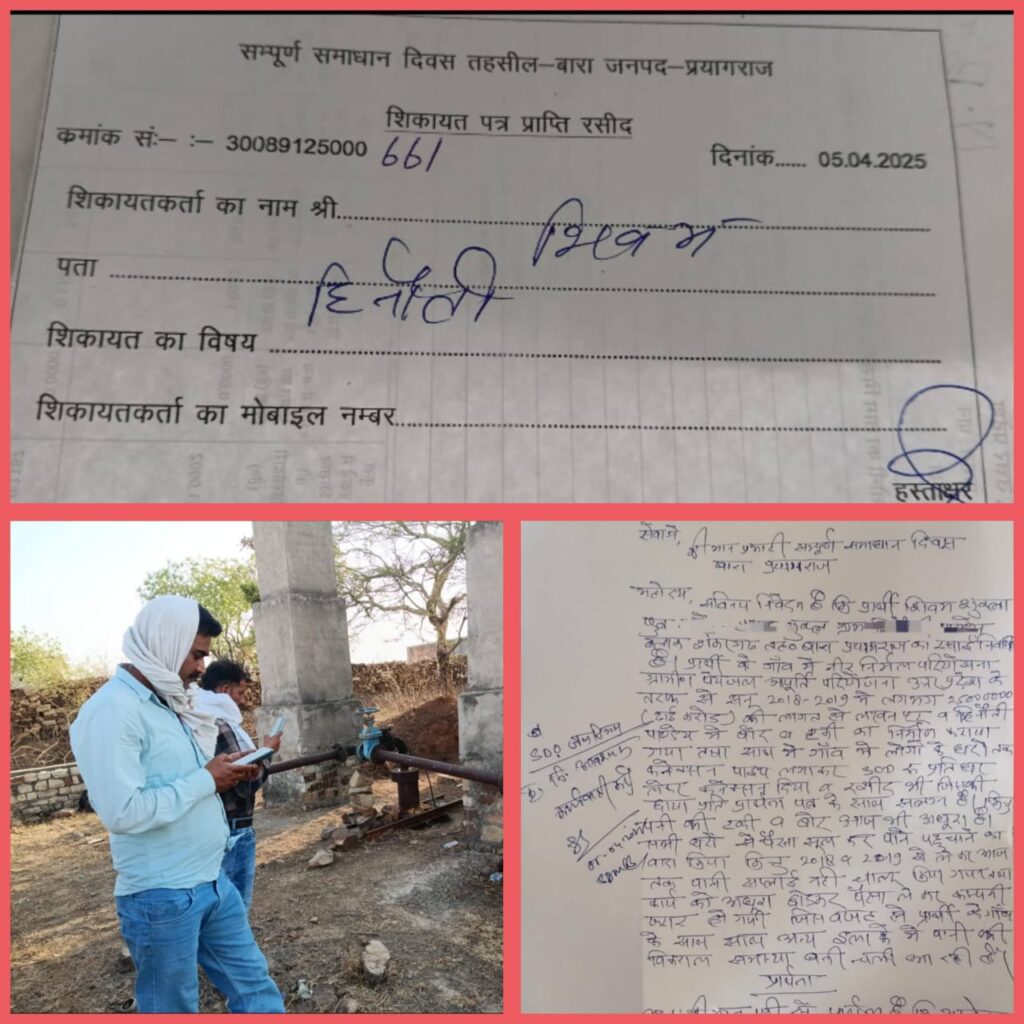 सम्पूर्ण समाधान दिवस तहसील–बारा जनपद–प्रयागराज
शिकायत पत्र प्राप्ति रसीद
कमांक सं:– :– 30089125000 661
दिनांक...... 05.04.2025
शिकायतकर्ता का नाम श्री
शिवम
पता
हिनौती
शिकायत का विषय
शिकायतकर्ता का मोबाइल नम्बर
हस्ताक्षर
सेवा में,
श्री मान प्रभारी सम्पूर्ण समाधान दिवस
बारा प्रयागराज
महोदय,
सविनय निवेदन है कि प्रार्थी शिवम शुक्ला
पुत्र शुक्ल ग्राम
शंकरगढ़ तह० बारा प्रयागराज का स्थाई
है। प्रार्थी के गाँव में नीर निर्मल परियोजना
ग्रामीण पेयजल आपूर्ति परियोजना उत्तर प्रदेश के
तरफ से सन् 2018-2019 में लगभग 25000000
(ढाई करोड़) की लागत से व हिनौती
पाण्डेय में बोर व टंकी का निर्माण कराया
गया तथा साथ में गाँव में लोगों के घरों तक
कनेक्सन पाइप लगाकर 300 रु प्रति घर
लेकर कनेक्सन दिया व रसीद भी जिसकी
छाया प्रति प्रार्थना पत्र के साथ संलग्न है। किन्तु
पानी की टंकी व बोर आज भी अधूरा है।
सभी घरों से पैसा वसूल कर पानी पहुचाने का
वादा किया किन्तु 2018 व 2019 से लेकर आज
तक पानी सप्लाई नहीं चालू किया गया तथा
कार्य को अधूरा छोड़कर पैसा लेकर कम्पनी
फरार हो गयी जिस वजह से प्रार्थी के गाँव
के साथ साथ अन्य इलाके में पानी की
विकराल समस्या बनी चली आ रही है।
प्रार्थना